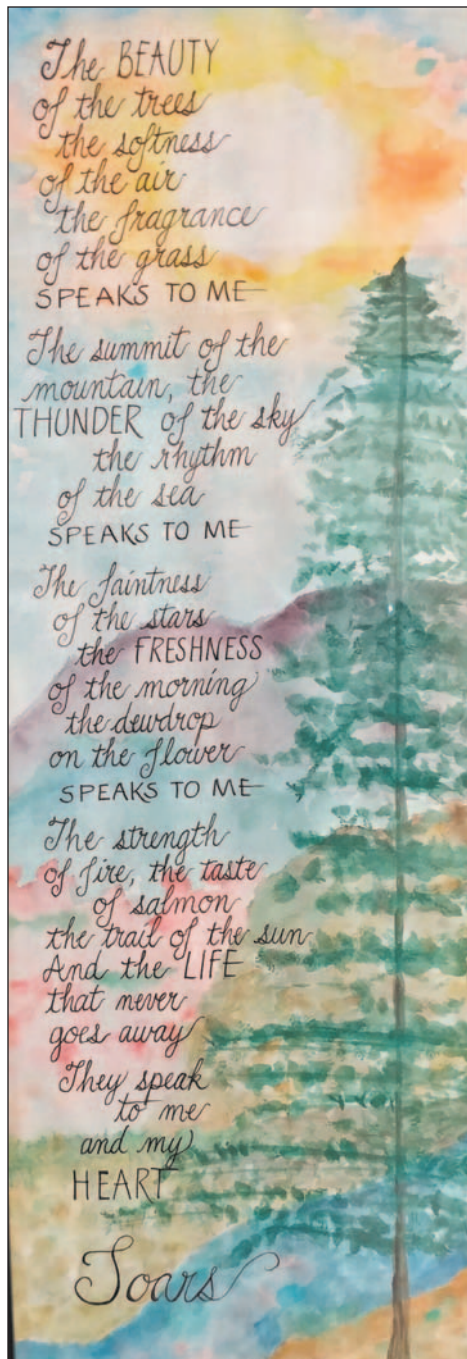 The BEAUTY
of the trees
the softness
of the air
the fragrance
of the grass
SPEAKS TO ME
The summit of the
mountain, the
THUNDER of the sky
the rhythm
of the sea
SPEAKS TO ME
The faintness
of the stars
the FRESHNESS
of the morning
the dewdrop
on the flower
SPEAKS TO ME
The strength
of fire, the taste
of salmon
the trail of the sun
And the LIFE
that never
goes away
They speak
to me
and my
HEART
Soars